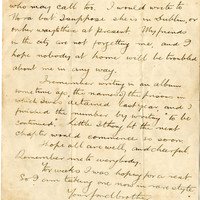 who may call too. I would write to
Nora but I suppose she is in Dublin, or
other at present. My friends
in the city are not forgetting me, and I
hope nobody at home will be troubled
about me in any way.
I remember writing in an album
sometime ago, the names of the prisons in
which I was detained last year and I
finished the number by writing "to be
continued". Little I thought the next
chapter would commence so soon
Hope all are well, and cheerful
Remember me to everybody.
For weeks I was hoping for a rest
So I am taking one now in
Your fond brother